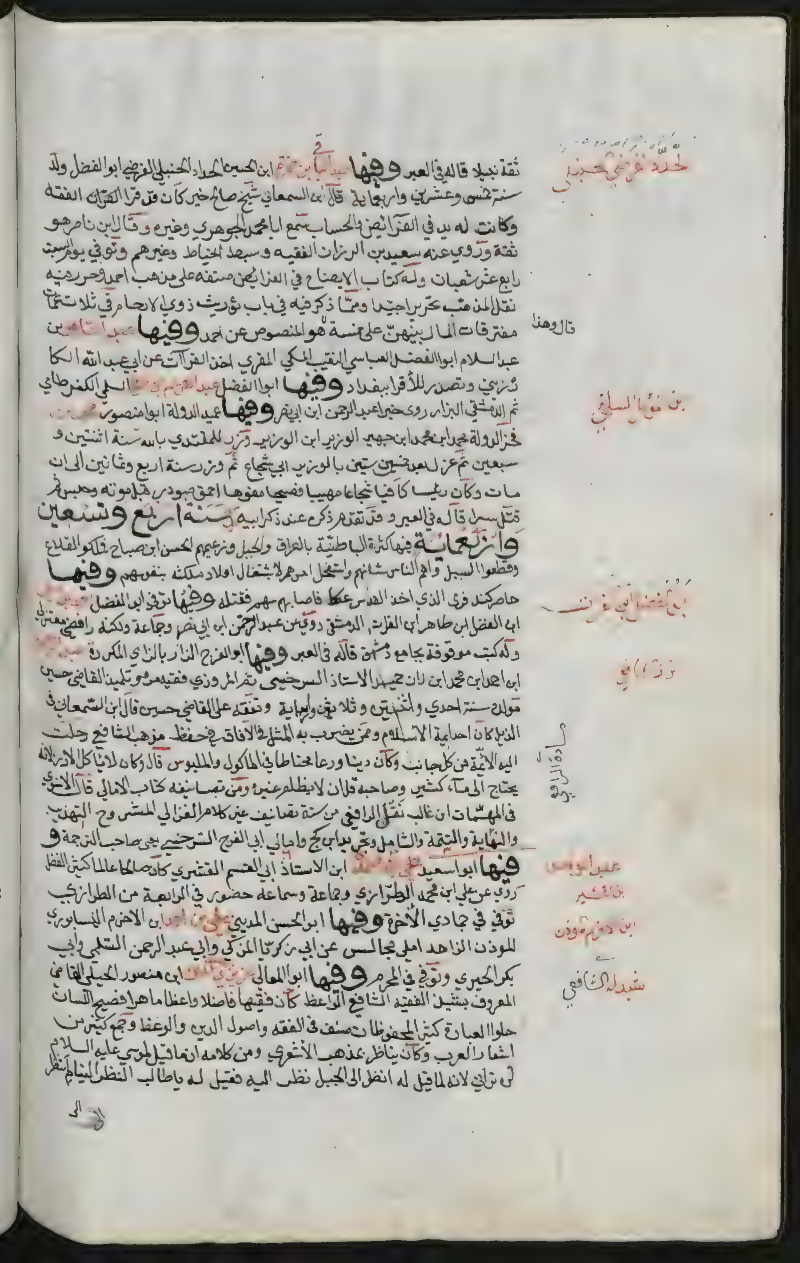 ثقة نبيلا قاله في العبر وفيها عبد الباقي بن حمزة ابن الحسين الحداد الحنبلي الفرضي ابو الفضل ولد
سنة خمس وعشرين واربعماية قال ابن السمعاني شيخ صالح خير كان قد قرا القران الفقه
وكانت له يد في الفرائض والحساب سمع ابا محمد الجوهري وغيره وقال ابن ناصر هو
ثقة وروي عنه سعيد بن الرزان الفقيه وسبط الخياط وغيرهم وتوفي يوم السبت
رابع عشر شعبان وله كتاب الايضاح في الفرائض صنفه على مذهب احمد وحرر فيه
نقل المذهب تحريرا جيدا ومما ذكر فيه في باب توريث ذوي الارحام في ثلاث عمات
مفترقات المال بينهن على خمسة هو المنصوص عن احمد وفيها عبد القاهر بن
قال وهذا
عبد السلام ابو الفضل العباسي النقيب المكي المقري اخذ القراآت عن ابي عبد الله الكا
زريني وتصدر للأقرا ببغداد وفيها ابو الفضل السلمي الكفرطابي
ثم الدمشقي البزار روى خبرا عبد الرحمن ابن ابي نصر وفيها عميد الدولة ابو منصور محمد بن
فخر الدولة محمد ابن محمد ابن جهير الوزير ابن الوزير وزر للمقتدي بالله سنة اثنتين و
سبعين ثم عزل بعد خمس سنين بالوزير ابي شجاع ثم وزر سنة اربع وثمانين الى ان
مات وكان رئيسا كافيا شجاعا مهيبا فصيحا مفوها احمق صودر قبل موته وحبس ثم
قتل سرا قاله في العبر وقد تقدم ذكره عند ذكر ابيه سنة اربع وتسعين
واربعماية فيها كثرة الباطنية بالعراق والجبل وزعيمهم الحسن ابن صباح فملكوا القلاع
وقطعوا السبل واهم الناس شانهم واستفحل امرهم لاشتغال اولاد ملكشه بنفوسهم وفيها
حاصر كندفري الذي اخذ القدس عكا فاصابه سهم فقتله وفيها توفي ابو الفضل
ابن الفضل ابن طاهر ابن الفرات الدمشقي روي عن عبد الرحمن ابن ابي نصر وجماعة ولكنه رافضي معتزلي
وله كتب موقوفة بجامع دمشق قاله في العبر وفيها ابو الفرج الزاز بالزاي المكررة
ابن احمد ابن محمد ابن زاز حميد الاستاذ السرخسي ثم المروزي فقيه مرو تلميذ القاضي حسين
مولده سنة احدي واثنتين وثلاثين واربعماية وتفقه على القاضي حسين قال ابن السمعاني في
الذيل كان احد ايمة الاسلام وممن يضرب به المثل في الآفاق في حفظ مذهب الشافعي رحلت
اليه الائمة من كل جانب وكان دينا ورعا محتاطا في الماكول والملبوس قال وكان لا ياكل الارز لانه
يحتاج الى ماء كثير وصاحبه قل ان لا يظلم غيره ومن تصانيفه كتاب الامالي قال الاسنوي
في المهمات ان غالب نقل الرافعي من ستة تصانيف غير كلام الغزالي المشروح التهذيب
والنهاية والتتمة والشامل وتجريد ابن كج وامالي ابي الفرج السرخسي يعني صاحب الترجمة و
فيها ابو سعيد ابن الاستاذ ابي القسم القشيري كان صالحا عالما كثير الفضل
روي عن علي ابن محمد الطرازي وجماعة وسماعه حضور في الرابعة من الطرازي
توفي في جمادي الآخرة وفيها ابو الحسن المديني علي بن احمد ابن الاخرم النيسابوري
الموذن الزاهد املى مجالس عن ابي زكريا المزكي وابي عبد الرحمن السلمي وابي
بكر الحيري وتوفي في المحرم وفيها ابو المعالي عزيزي بن عبد الملك ابن منصور الجيلي القاضي
المعروف بشيذلة الفقيه الشافعي الواعظ كان فقيها فاضلا واعظا ماهرا فصيح اللسان
حلو العبارة كثير المحفوظات صنف في الفقه واصول الدين والوعظ وجمع كثيرا من
اشعار العرب وكان يناظر بمذهب الأشعري ومن كلامه انما قيل لموسي عليه السلام
لن تراني لانه لما قيل له انظر الى الجبل نظر اليه فقيل له يا طالب النظر الينا لم تنظر
الى
الحداد فرضي حنبلي
ابو الفضل ابن فرات
مادة الرافعي
بن القشيري
ابن الاخرم موذن
شيذلة الشافعي